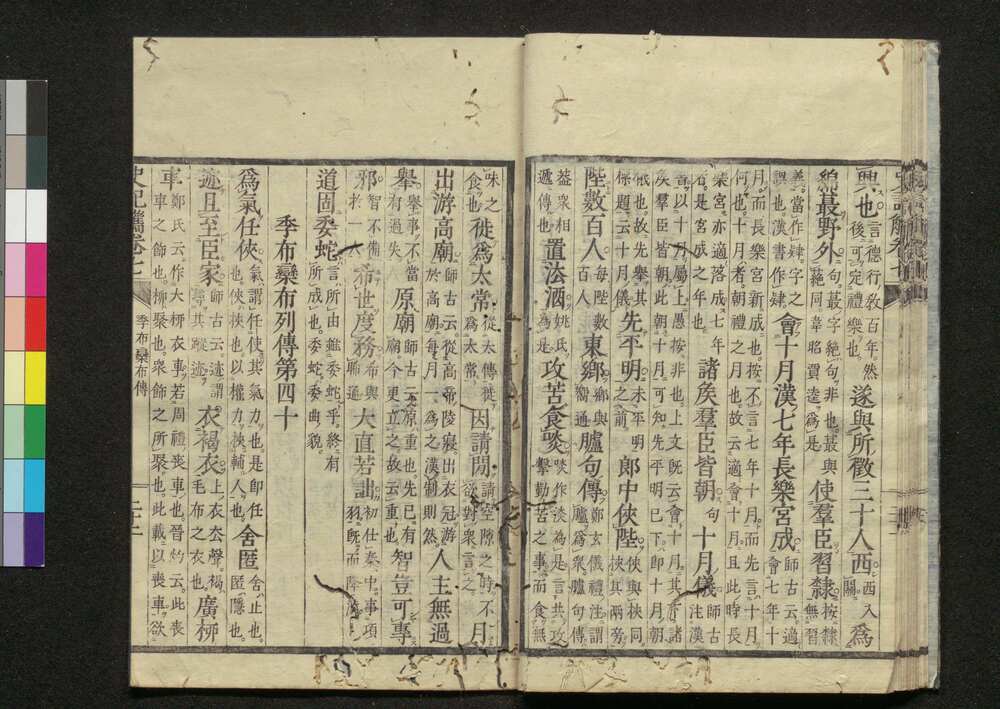 興也言德行敎百年然後可定禮樂也遂與所徵三十人西西入關爲
緜蕞野外句蕞字絕句非也蕞與蕝同韋昭賈逵爲是使羣臣習隸按隸無習
義當作肄字之誤也漢書作肄會十月漢七年長樂宮成師古云適會七年十
月而長樂宮新成也按不言七年十月而先言十月
何也十月者朝禮之月也故云適會十月且此時長
樂宮亦適落成七年
者是宮成之年也諸侯羣臣皆朝句十月儀師古注漢
書以十月屬上愚按非也上文旣云會十月其言諸
矣羣臣皆朝此朝十月可知先平明已下卽十月朝
儀也故先擧其
標題云十月儀先平明未平明之前郞中俠陛俠與挾同挾其兩旁
陛數百人每陛數百人東鄉鄉與嚮通臚句傳鄭玄儀禮注謂臚爲衆臚句傳
蓋衆相遞傳也置法酒姚氏爲是攻苦食啖啖作淡爲是言共攻擊勤苦之事而食無
味之食也徙爲太常從太傅徙爲太常因請閒請空隙之時不欲對衆言之月
出游高廟師古云從高帝陵寢出衣冠游於高廟每月一爲之漢制則然人主無過
擧擧事不當有過失原廟師古云原重也先已有廟今更立之故云重也智豈可專
邪智不備於一人希世度務布與睎通大直若詘初仕秦中事項羽旣而降漢
道固委蛇言所由雖委蛇乎終有所成也委蛇委曲貌
季布欒布列傳第四十
爲氣任俠氣謂任使其氣力也是卽任也俠挾也以權力挾輔人也舍匿舍止也匿隱也
迹且至臣家師古云迹謂尋其蹤迹衣褐衣上衣去聲褐毛布之衣也廣柳
車鄭氏云作大柳衣車若周禮喪車也晉灼云此喪
車之飾也柳聚也衆飾之所聚也此載以喪車欲
季布欒布傳